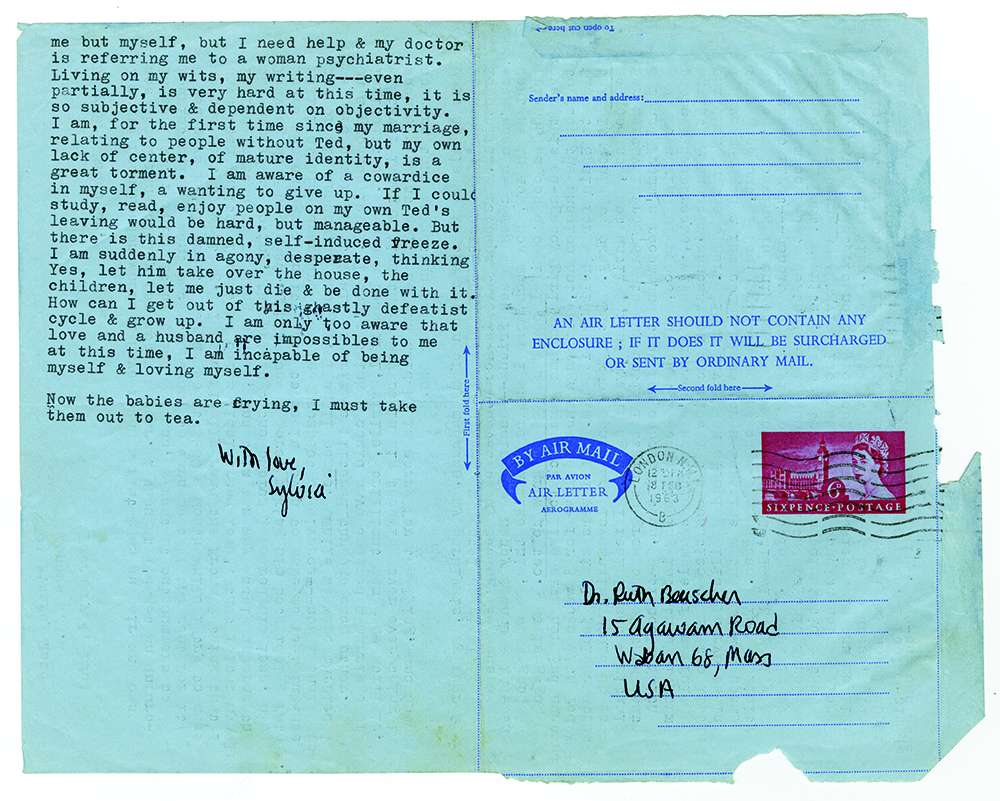 me but myself, but I need help & my doctor
is referring me to a woman psychiatrist.
Living on my wits, my writing---even
partially, is very hard at this time, it is
so subjective & dependent on objectivity.
I am, for the first time since my marriage,
relating to people without Ted, but my own
lack of center, of mature identity, is a
great torment. I am aware of a cowardice
in myself, a wanting to give up. If I could
study, read, enjoy people on my own Ted's
leaving would be hard, but manageable. But
there is this damned, self-induced freeze.
I am suddenly in agony, desperate, thinking
Yes, let him take over the house, the
children, let me just die & be done with it.
How can I get out of this ghastly defeatist
cycle & grow up. I am only too aware that
love and a husband are impossibles to me
at this time, I am incapable of being
myself & loving myself.
Now the babies are crying, I must take
them out to tea.
With love,
Sylvia
To open cut here
Sender's name and address:
AN AIR LETTER SHOULD NOT CONTAIN ANY
ENCLOSURE ; IF IT DOES IT WILL BE SURCHARGED
OR SENT BY ORDINARY MAIL.
Second fold here
First fold here
BY AIR MAIL
PAR AVION
AIR LETTER
AEROGRAMME
LONDON
1963
B
6D
SIXPENCE·POSTAGE
Dr. Ruth Beuscher
15 Agawam Road
Waban 68, Mass
USA